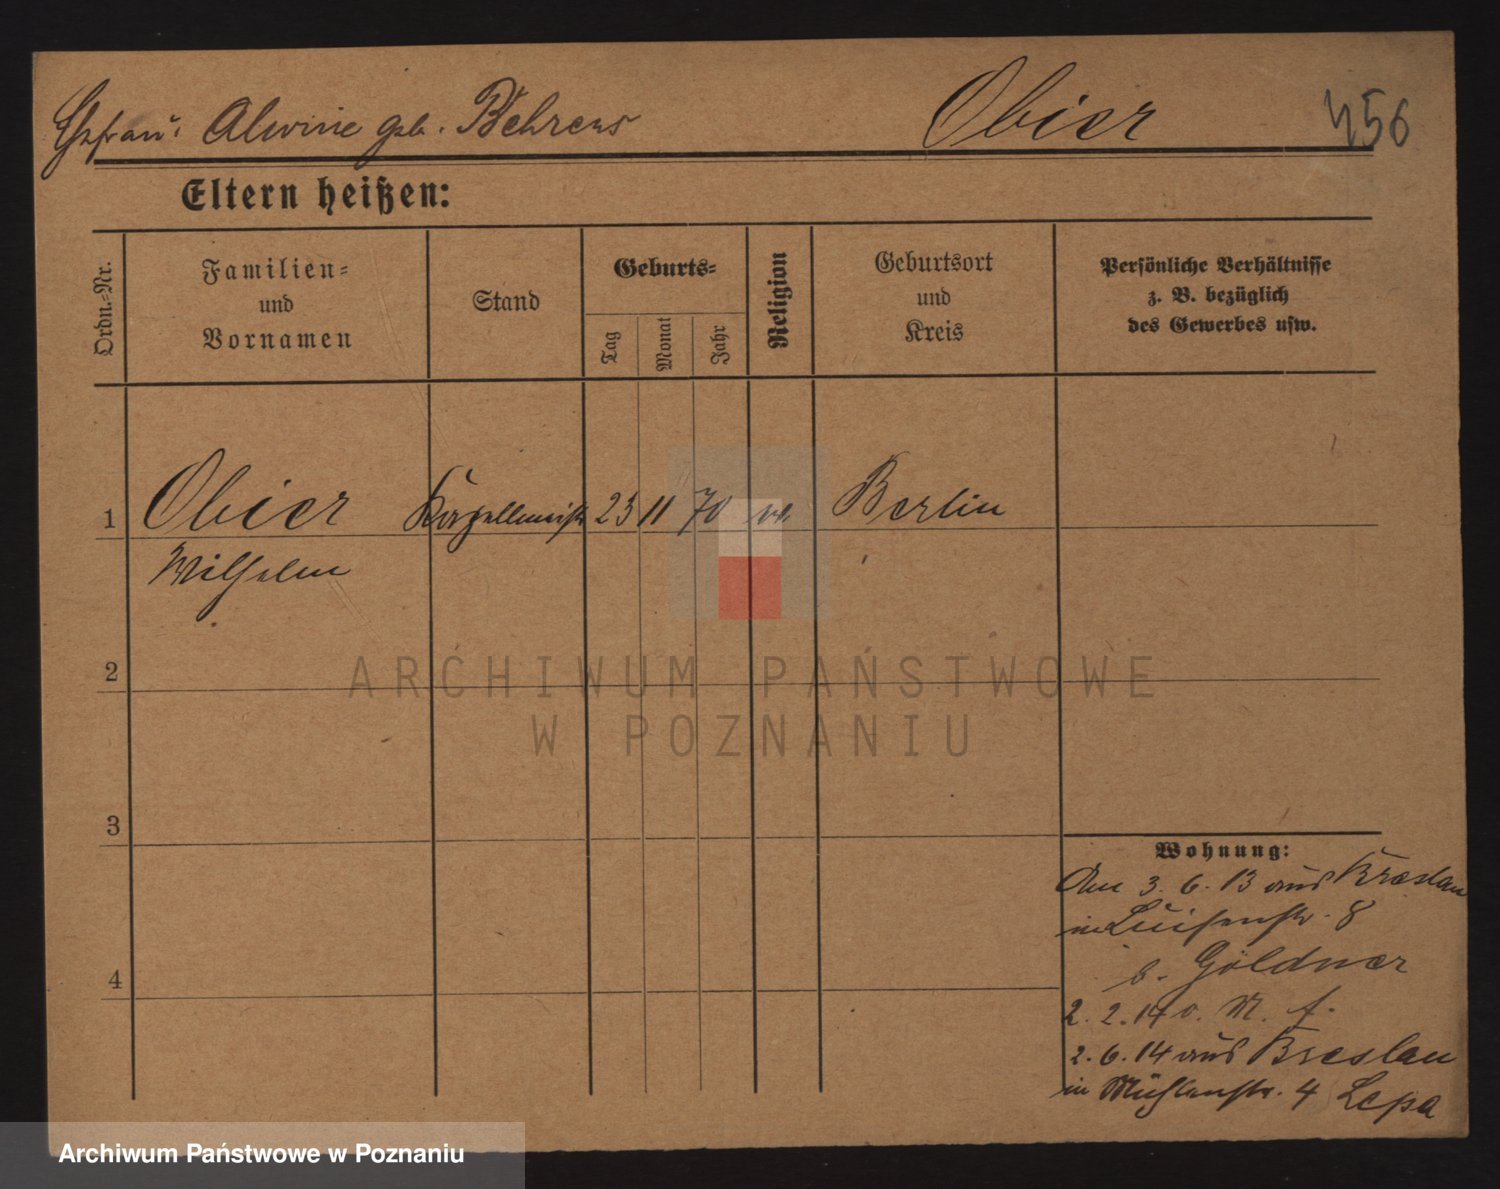 Ehefrau: Alwine geb. Behrens Obier 456
Eltern heißen:
Ordn.=Nr.
Familien=
und
Vornamen
Stand
Geburts=
Tag
Monat
Jahr
Religion
Geburtsort
und
Kreis
Persönliche Verhältnisse
z. B. bezüglich
des Gewerbes usw.
1 Obier Kapellmeistr 23 11 70 Berlin
Wilhelm
2
ARCHIWUM PAŃSTWOWE
W POZNANIU
3
Wohnung:
Am 3. 6. 13 aus Breslau
in Luisenstr. 8
b. Goldner
4
2. 2. 14 o. M. f.
2. 6. 14 aus Breslau
in Mühlenstr. 4 Lepa
Archiwum Państwowe w Poznaniu